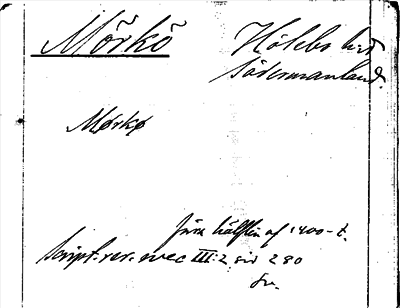 Mörkö
Hölebo hrd
Södermanland.
Mørkø
förra hälften af 1400-t.
Script. rer. svec III:2 sid 280
Sv.